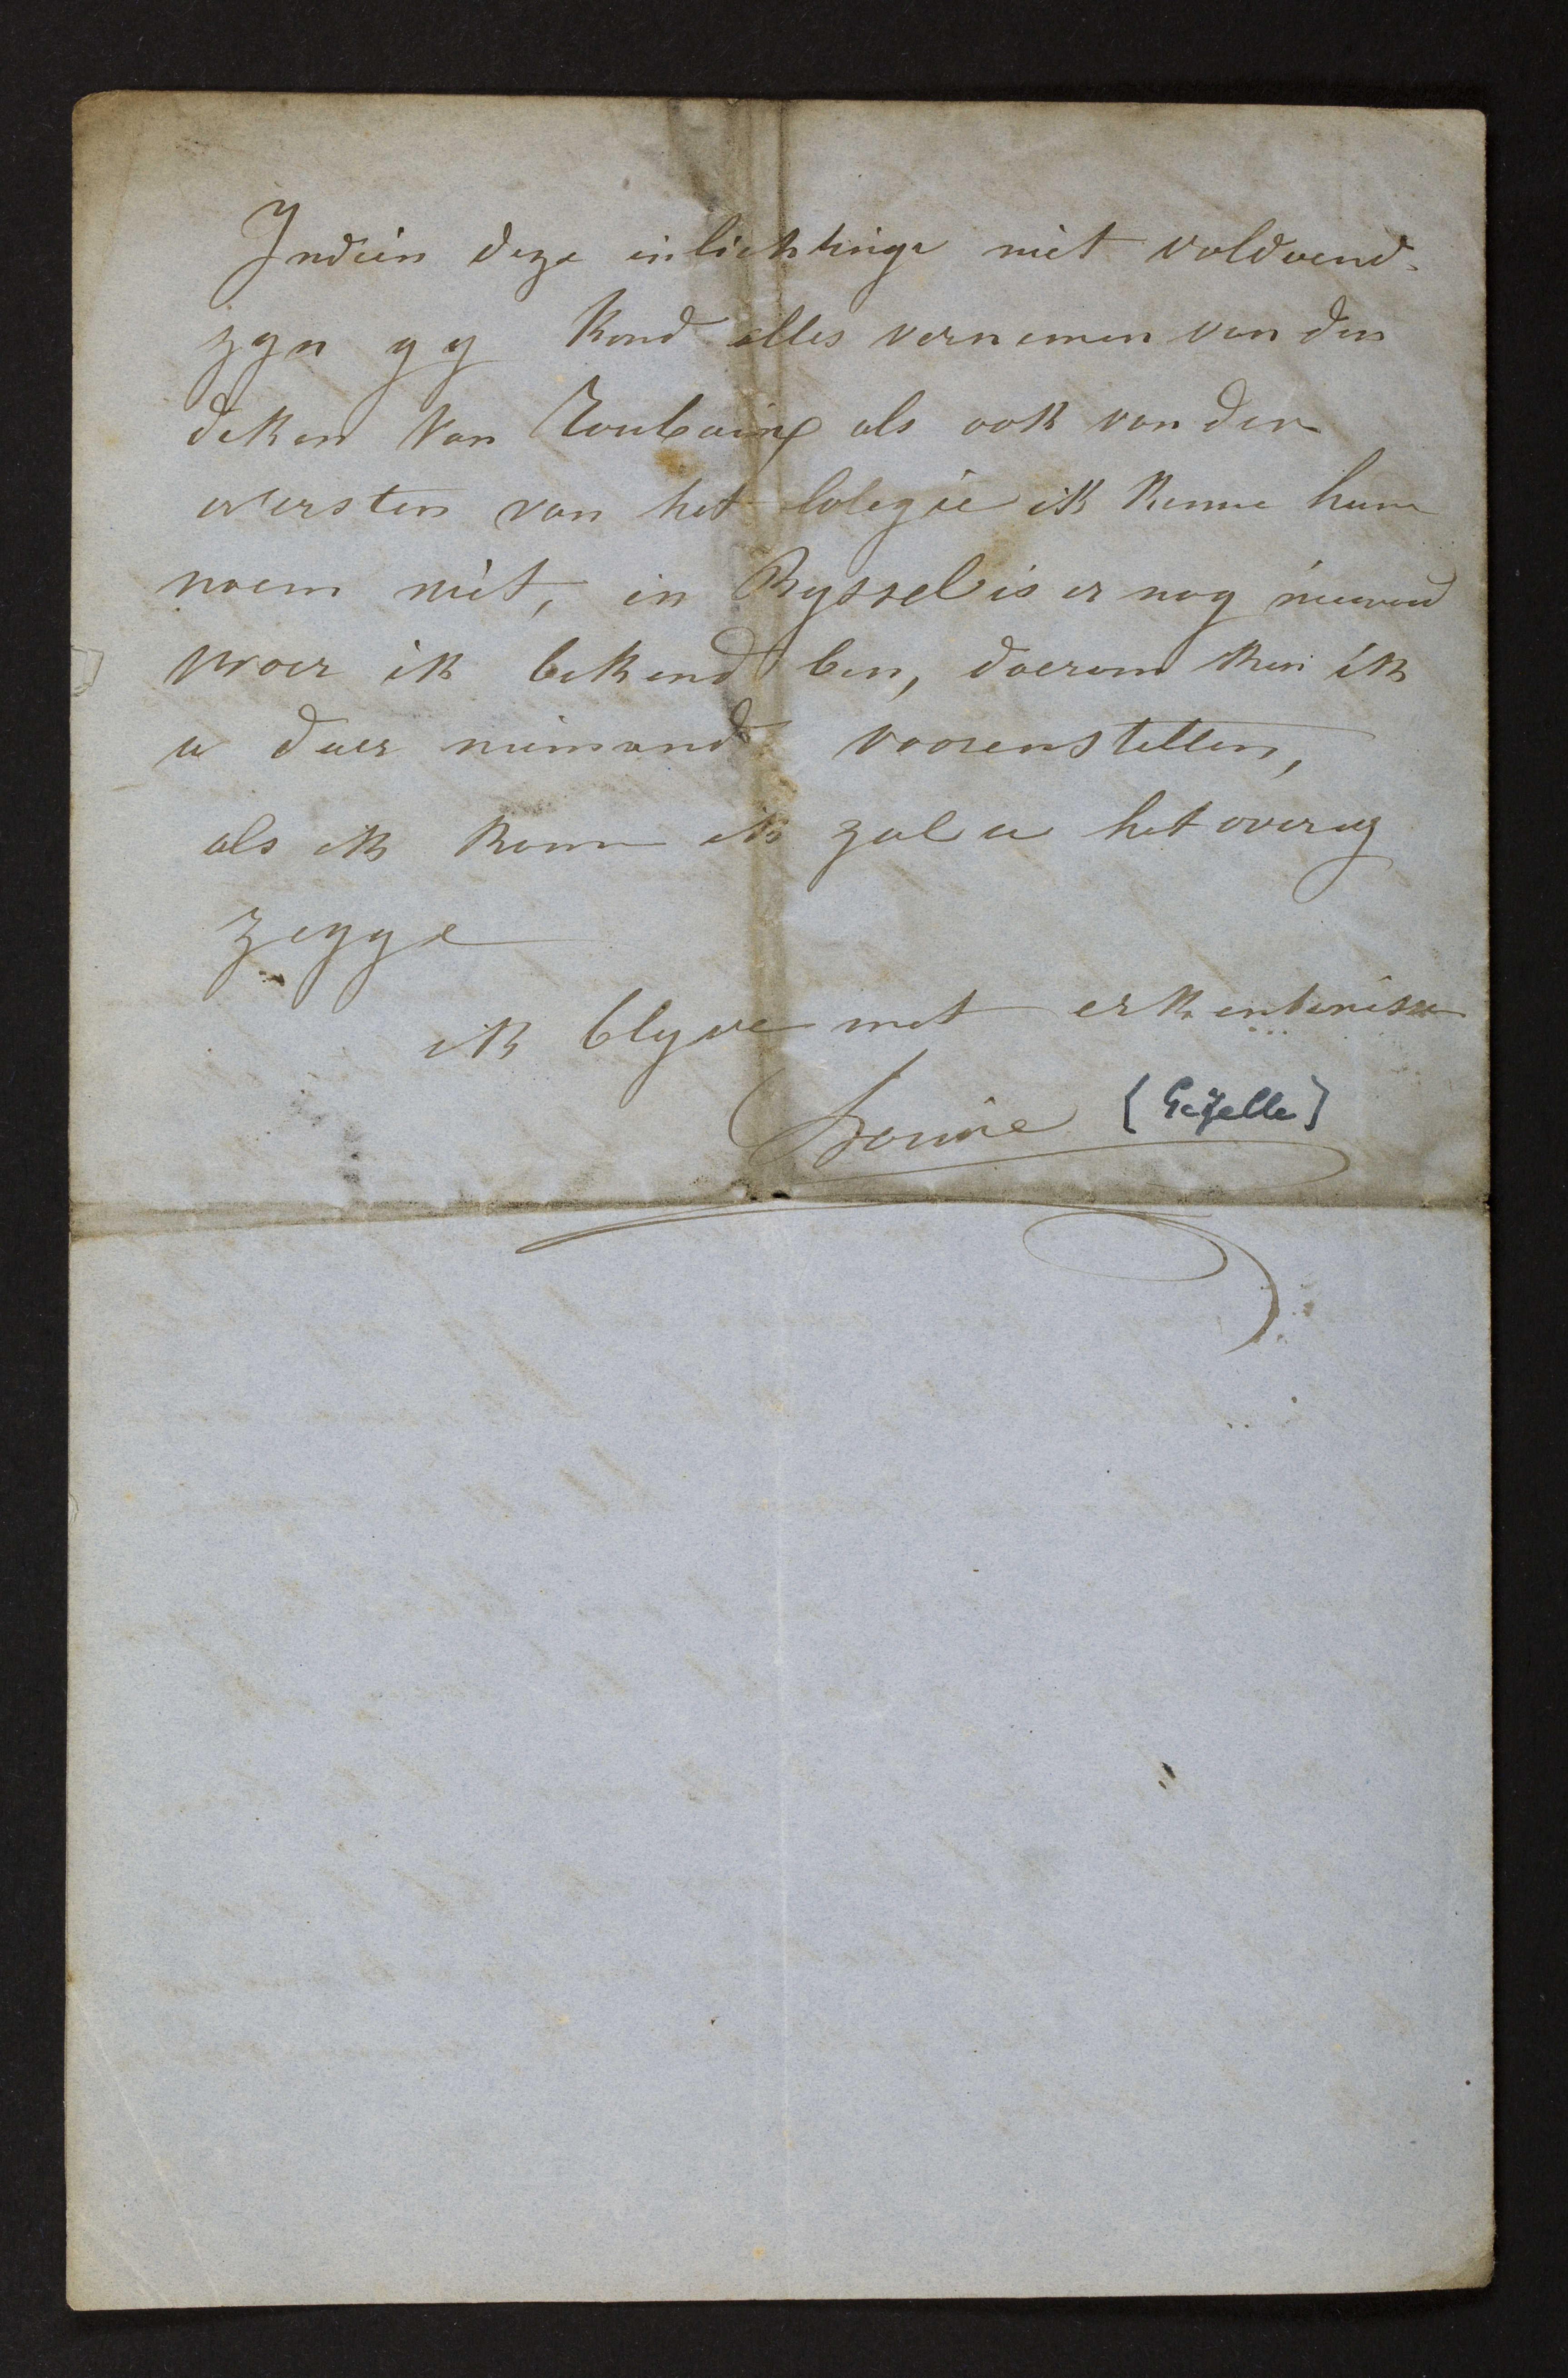 Indien deze inlichtinge niet voldoend
zyn gy kond alles vernemen van den
deken van Roubaix als ook van den
oversten van het Colegie ik kenne hun
naem niet, in Ryssel is er nog niemand
waer ik bekend ben, daerom kan ik
u daer niemand voorenstellen,
als ik kome ik zal u het overig
zegge
ik blyve met erkentenisse
Louise [Gezelle]